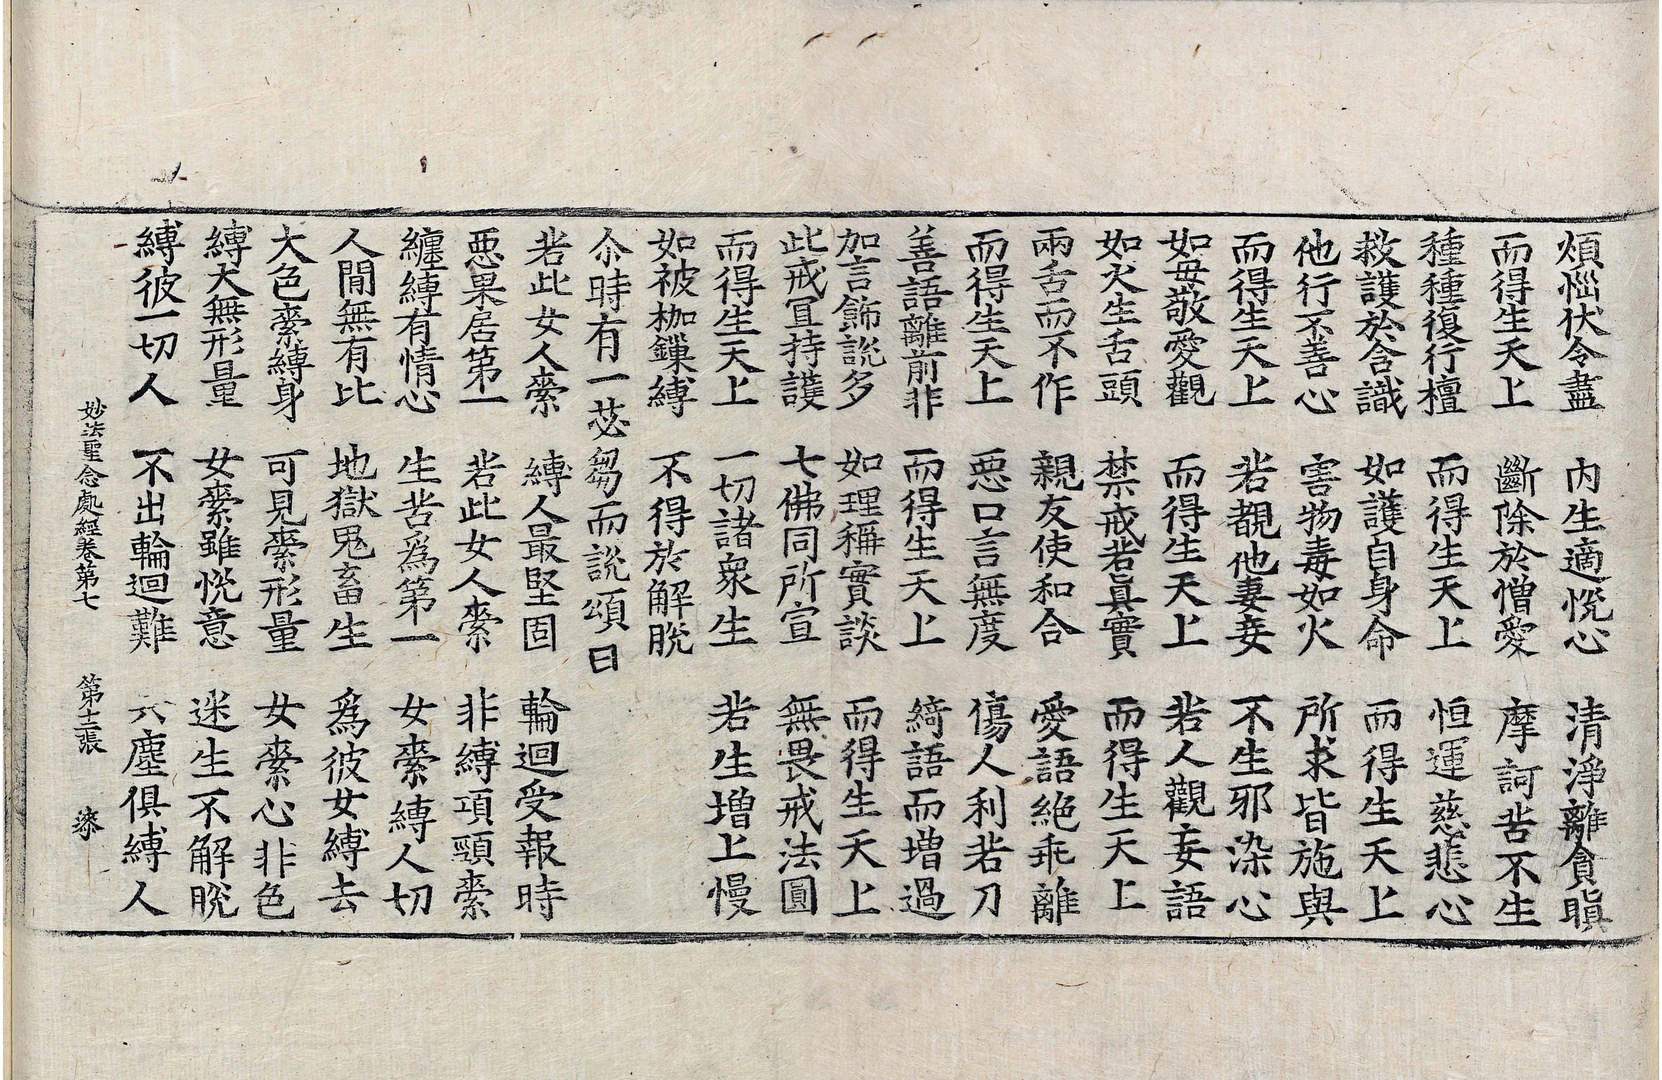 煩惱伏令盡　内生適悅心　清淨離貪瞋
而得生天上　斷除於憎愛　摩訶苦不生
種種復行檀　而得生天上　恒運慈悲心
救護於含識　如護自身命　而得生天上
他行不善心　害物毒如火　所求皆施與
而得生天上　若覩他妻妾　不生邪染心
如母敬愛觀　而得生天上　若人觀妄語
如火生舌頭　禁戒若眞實　而得生天上
兩舌而不作　親友使和合　愛語絶乖離
而得生天上　惡口言無度　傷人利若刀
善語離前非　而得生天上　綺語而增過
加言飾說多　如理稱實談　而得生天上
此戒宜持護　七佛同所宣　無畏戒法圓
而得生天上　一切諸衆生　若生增上慢
如被枷鏁縛　不得於解脫
尒時有一苾芻而說頌曰
若此女人𮈔　縛人最堅固　輪迴受報時
惡果居第一　若此女人𮈔　非縛項頸𮈔
纏縛有情心　生苦爲第一　女𮈔縛人切
人閒無有比　地獄鬼畜生　爲彼女縛去
大色𮈔縛身　可見𮈔形量　女𮈔心非色
縛大無形量　女𮈔雖悅意　迷生不解脫
縛彼一切人　不出輪迴難　六塵俱縛人
妙法聖念處經卷第七　第十二張　漆